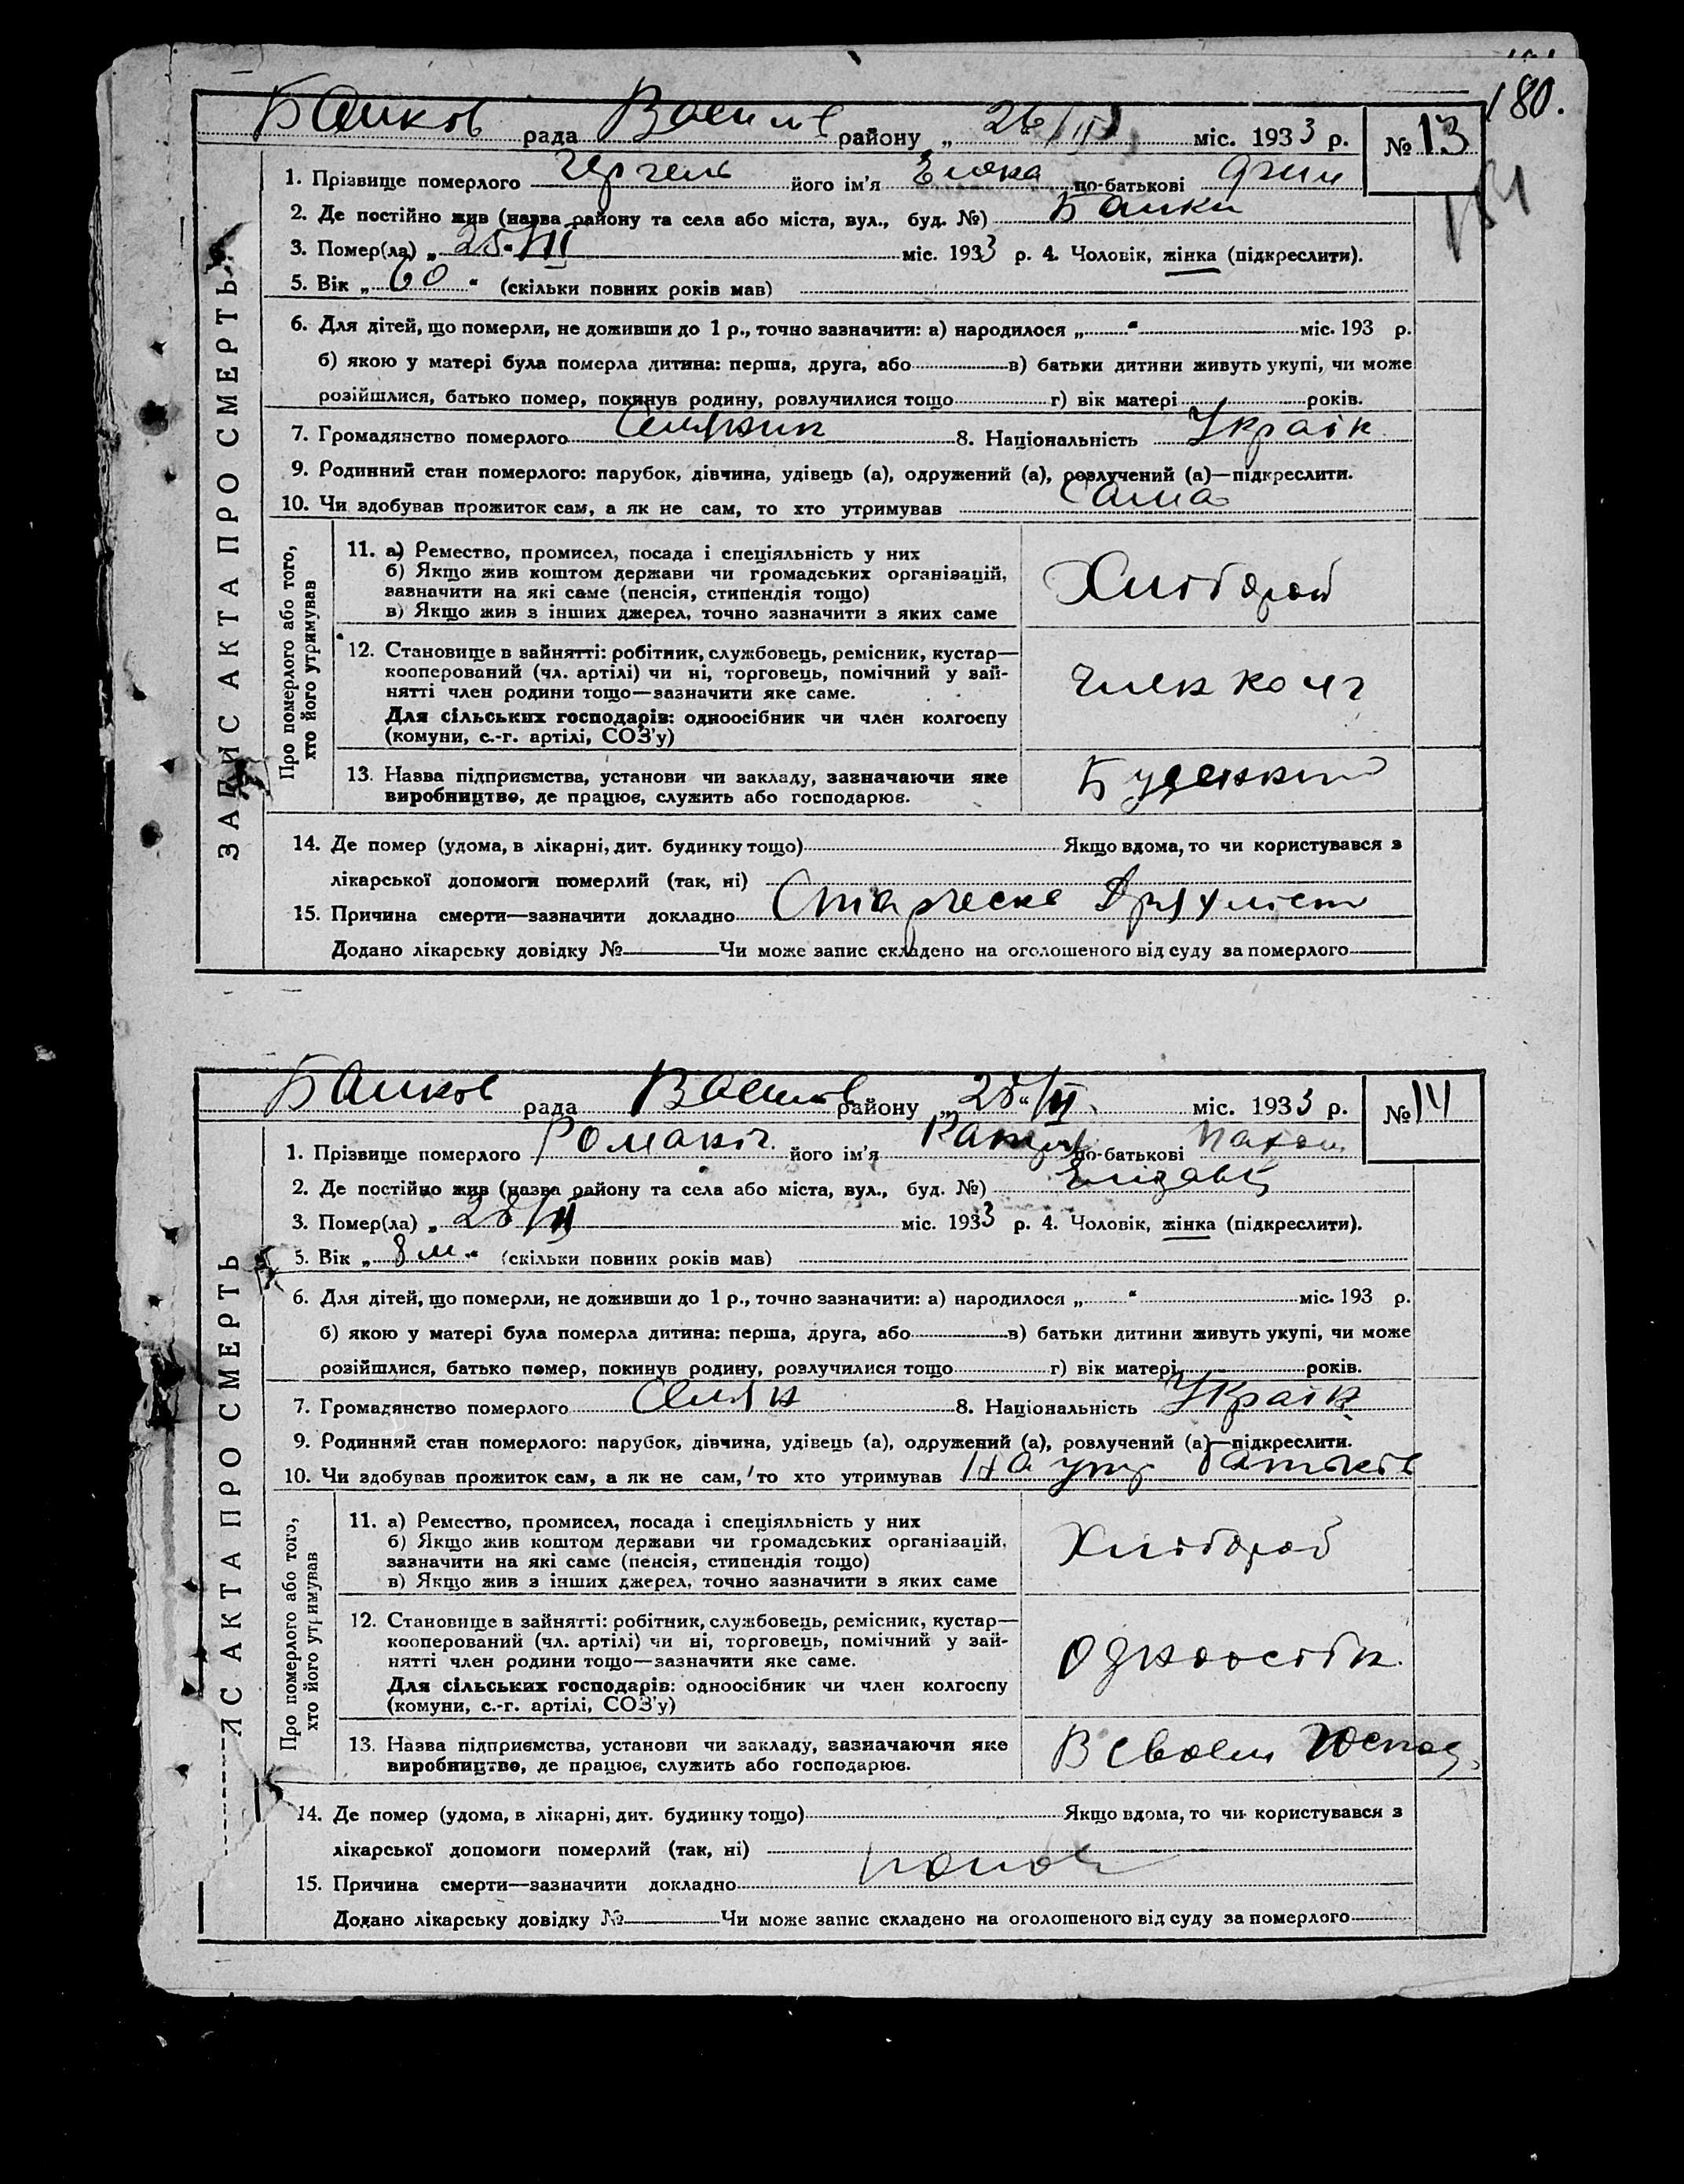 180.
Банков рада Василів району „ 26/III міс. 1933 р. № 13
181
1. Прізвище померлого його ім'я по-батькові
2. Де постійно жив (назва району та села або міста, вул., буд. №) Банки
3. Помер(ла) „ 25 " III міс. 1933 р. 4. Чоловік, жінка (підкреслити).
5. Вік „ 60 " (скільки повних років мав)
6. Для дітей, що померли, не доживши до 1 р., точно зазначити: а) народилося „ " міс. 193 р.
б) якою у матері була померла дитина: перша, друга, або в) батьки дитини живуть укупі, чи може
розійшлися, батько помер, покинув родину, розлучилися тощо г) вік матері років.
7. Громадянство померлого Селянин 8. Національність Україн
9. Родинний стан померлого: парубок, дівчина, удівець (а), одружений (а), розлучений (а)—підкреслити.
10. Чи здобував прожиток сам, а як не сам, то хто утримував Сама
ЗАПИС АКТА ПРО СМЕРТЬ
Про померлого або того,
хто його утримував
11. а) Ремество, промисел, посада і спеціяльність у них
б) Якщо жив коштом держави чи громадських організацій,
зазначити на які саме (пенсія, стипендія тощо)
в) Якщо жив з інших джерел, точно зазначити з яких саме
Хлібороб
12. Становище в зайнятті: робітник, службовець, ремісник, кустар—
кооперований (чл. артілі) чи ні, торговець, помічний у зай-
нятті член родини тощо—зазначити яке саме.
Для сільських господарів: одноосібник чи член колгоспу
(комуни, с.-г. артілі, СОЗ'у)
Член колг
13. Назва підприємства, установи чи закладу, зазначаючи яке
виробництво, де працює, служить або господарює.
Буденного
14. Де помер (удома, в лікарні, дит. будинку тощо) Якщо вдома, то чи користувався з
лікарської допомоги померлий (так, ні)
15. Причина смерти—зазначити докладно Старческа Дряхлість
Додано лікарську довідку № Чи може запис складено на оголошеного від суду за померлого
Банков рада Василів району „ 28 " /III міс. 1933 р. № 14
1. Прізвище померлого його ім'я по-батькові
2. Де постійно жив (назва району та села або міста, вул., буд. №) Елізавець
3. Помер(ла) „ 28/III міс. 1933 р. 4. Чоловік, жінка (підкреслити).
5. Вік „ 8 м. " (скільки повних років мав)
6. Для дітей, що померли, не доживши до 1 р., точно зазначити: а) народилося „ " міс. 193 р.
б) якою у матері була померла дитина: перша, друга, або в) батьки дитини живуть укупі, чи може
розійшлися, батько помер, покинув родину, розлучилися тощо г) вік матері років.
7. Громадянство померлого Селян 8. Національність Україн
9. Родинний стан померлого: парубок, дівчина, удівець (а), одружений (а), розлучений (а)—підкреслити.
10. Чи здобував прожиток сам, а як не сам, то хто утримував На утр батьків
ИС АКТА ПРО СМЕРТЬ
Про померлого або того,
хто його утримував
11. а) Ремество, промисел, посада і спеціяльність у них
б) Якщо жив коштом держави чи громадських організацій,
зазначити на які саме (пенсія, стипендія тощо)
в) Якщо жив з інших джерел, точно зазначити з яких саме
Хлібороб
12. Становище в зайнятті: робітник, службовець, ремісник, кустар—
кооперований (чл. артілі) чи ні, торговець, помічний у зай-
нятті член родини тощо—зазначити яке саме.
Для сільських господарів: одноосібник чи член колгоспу
(комуни, с.-г. артілі, СОЗ'у)
Одноосібн.
13. Назва підприємства, установи чи закладу, зазначаючи яке
виробництво, де працює, служить або господарює.
В своєм господ.
14. Де помер (удома, в лікарні, дит. будинку тощо) Якщо вдома, то чи користувався з
лікарської допомоги померлий (так, ні)
15. Причина смерти—зазначити докладно
Додано лікарську довідку № Чи може запис складено на оголошеного від суду за померлого